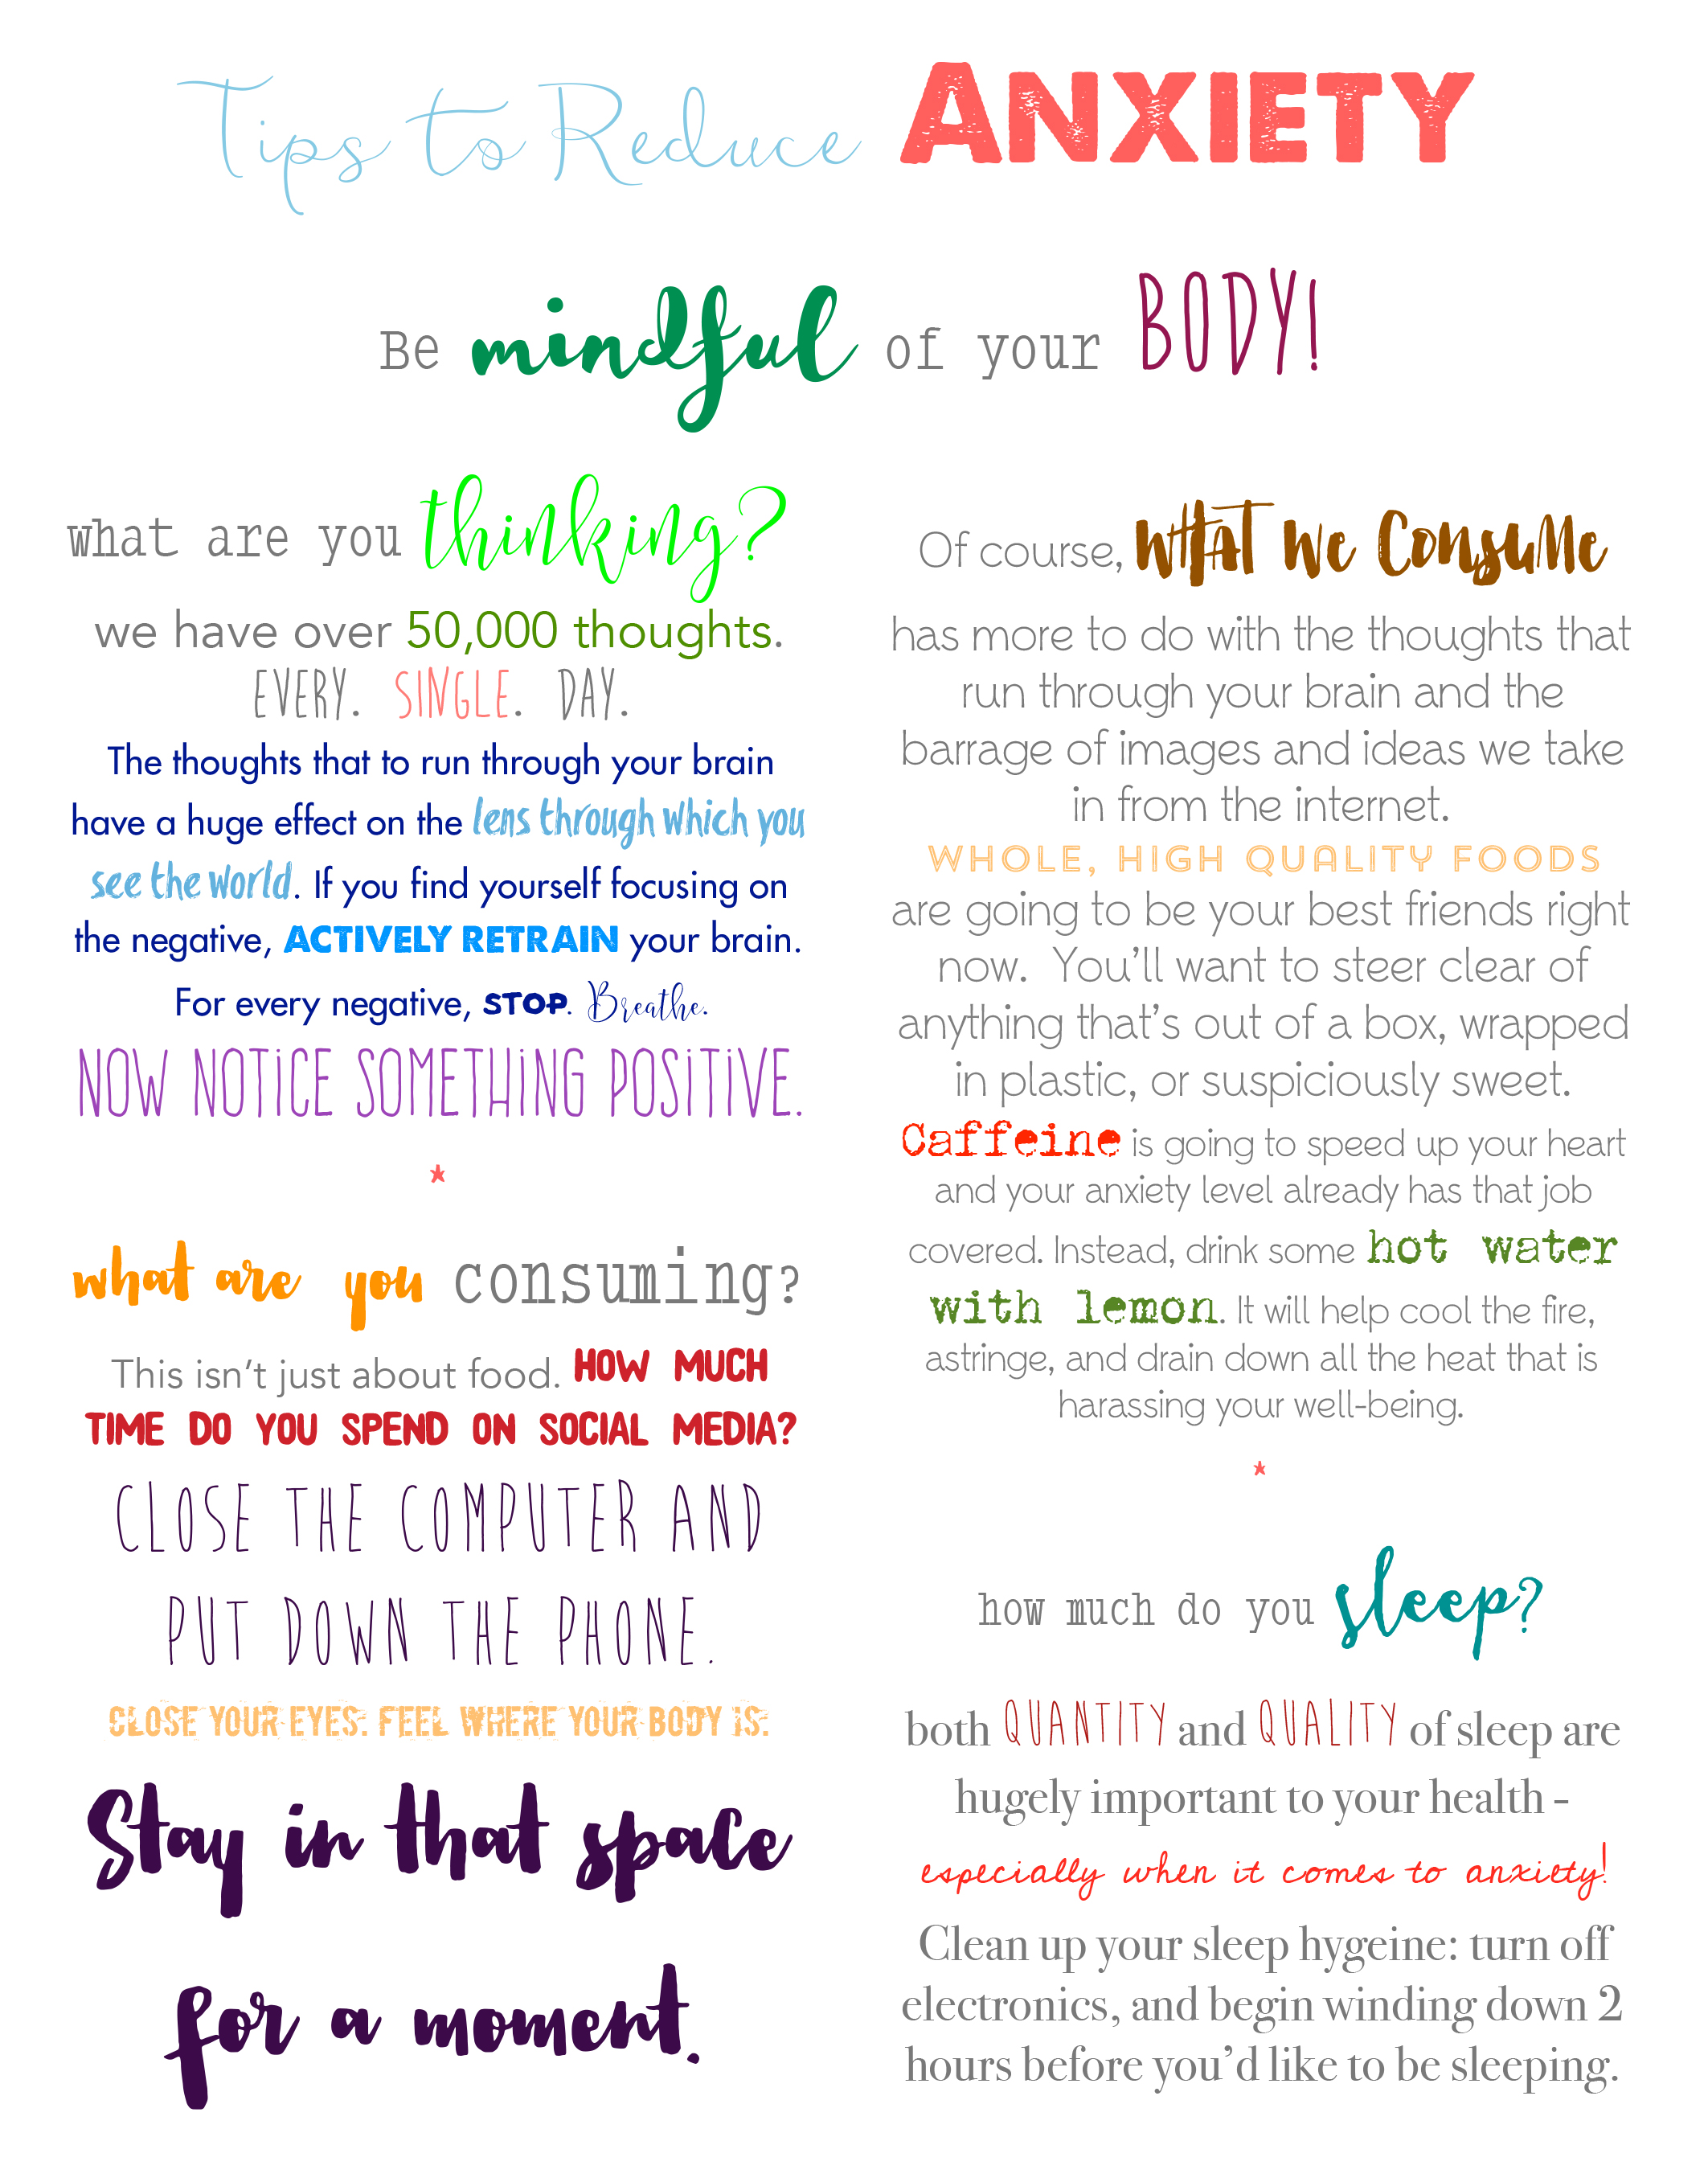 Tips to Reduce ANXIETY
Be mindful of your BODY!
what are you thinking?
we have over 50,000 thoughts.
EVERY. SINGLE. DAY.
The thoughts that to run through your brain
have a huge effect on the lens through which you
see the world. If you find yourself focusing on
the negative, ACTIVELY RETRAIN your brain.
For every negative, STOP. Breathe.
NOW NOTiCE SOMETHiNG POSiTiVE.
*
what are you consuming?
This isn't just about food. HOW MUCH
TIME DO YOU SPEND ON SOCIAL MEDIA?
CLOSE THE COMPUTER AND
PUT DOWN THE PHONE.
CLOSE YOUR EYES. FEEL WHERE YOUR BODY IS.
Stay in that space
for a moment.
Of course, WHAT We ConsuMe
has more to do with the thoughts that
run through your brain and the
barrage of images and ideas we take
in from the internet.
WHOLE, HIGH QUALITY FOODS
are going to be your best friends right
now. You'll want to steer clear of
anything that's out of a box, wrapped
in plastic, or suspiciously sweet.
Caffeine is going to speed up your heart
and your anxiety level already has that job
covered. Instead, drink some hot water
with lemon. It will help cool the fire,
astringe, and drain down all the heat that is
harassing your well-being.
*
how much do you sleep?
both QUANTITY and QUALITY of sleep are
hugely important to your health -
especially when it comes to anxiety!
Clean up your sleep hygeine: turn off
electronics, and begin winding down 2
hours before you'd like to be sleeping.